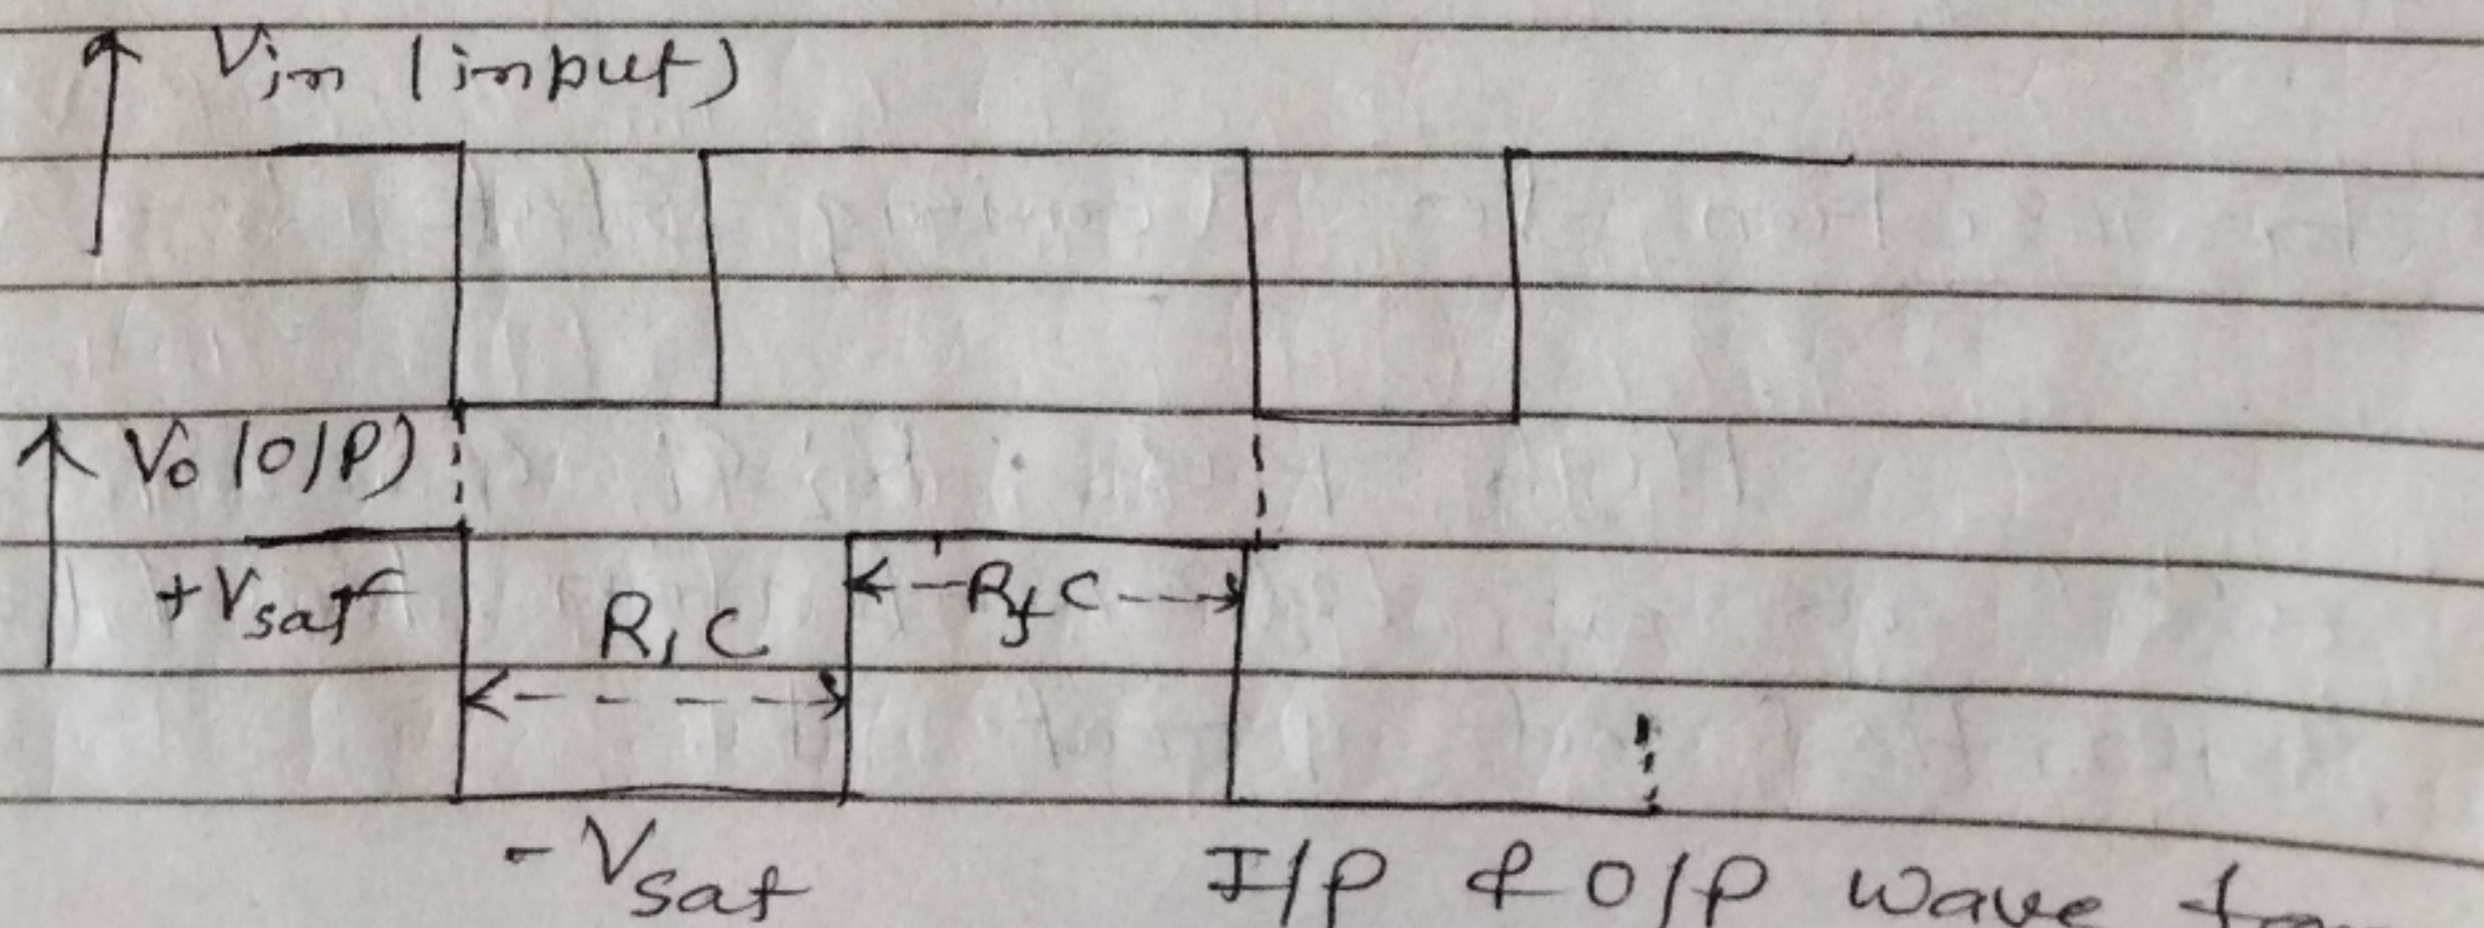 Vin (input)
Vo (O/P)
+Vsat
R1C
RfC
-Vsat
I/P & O/P wave